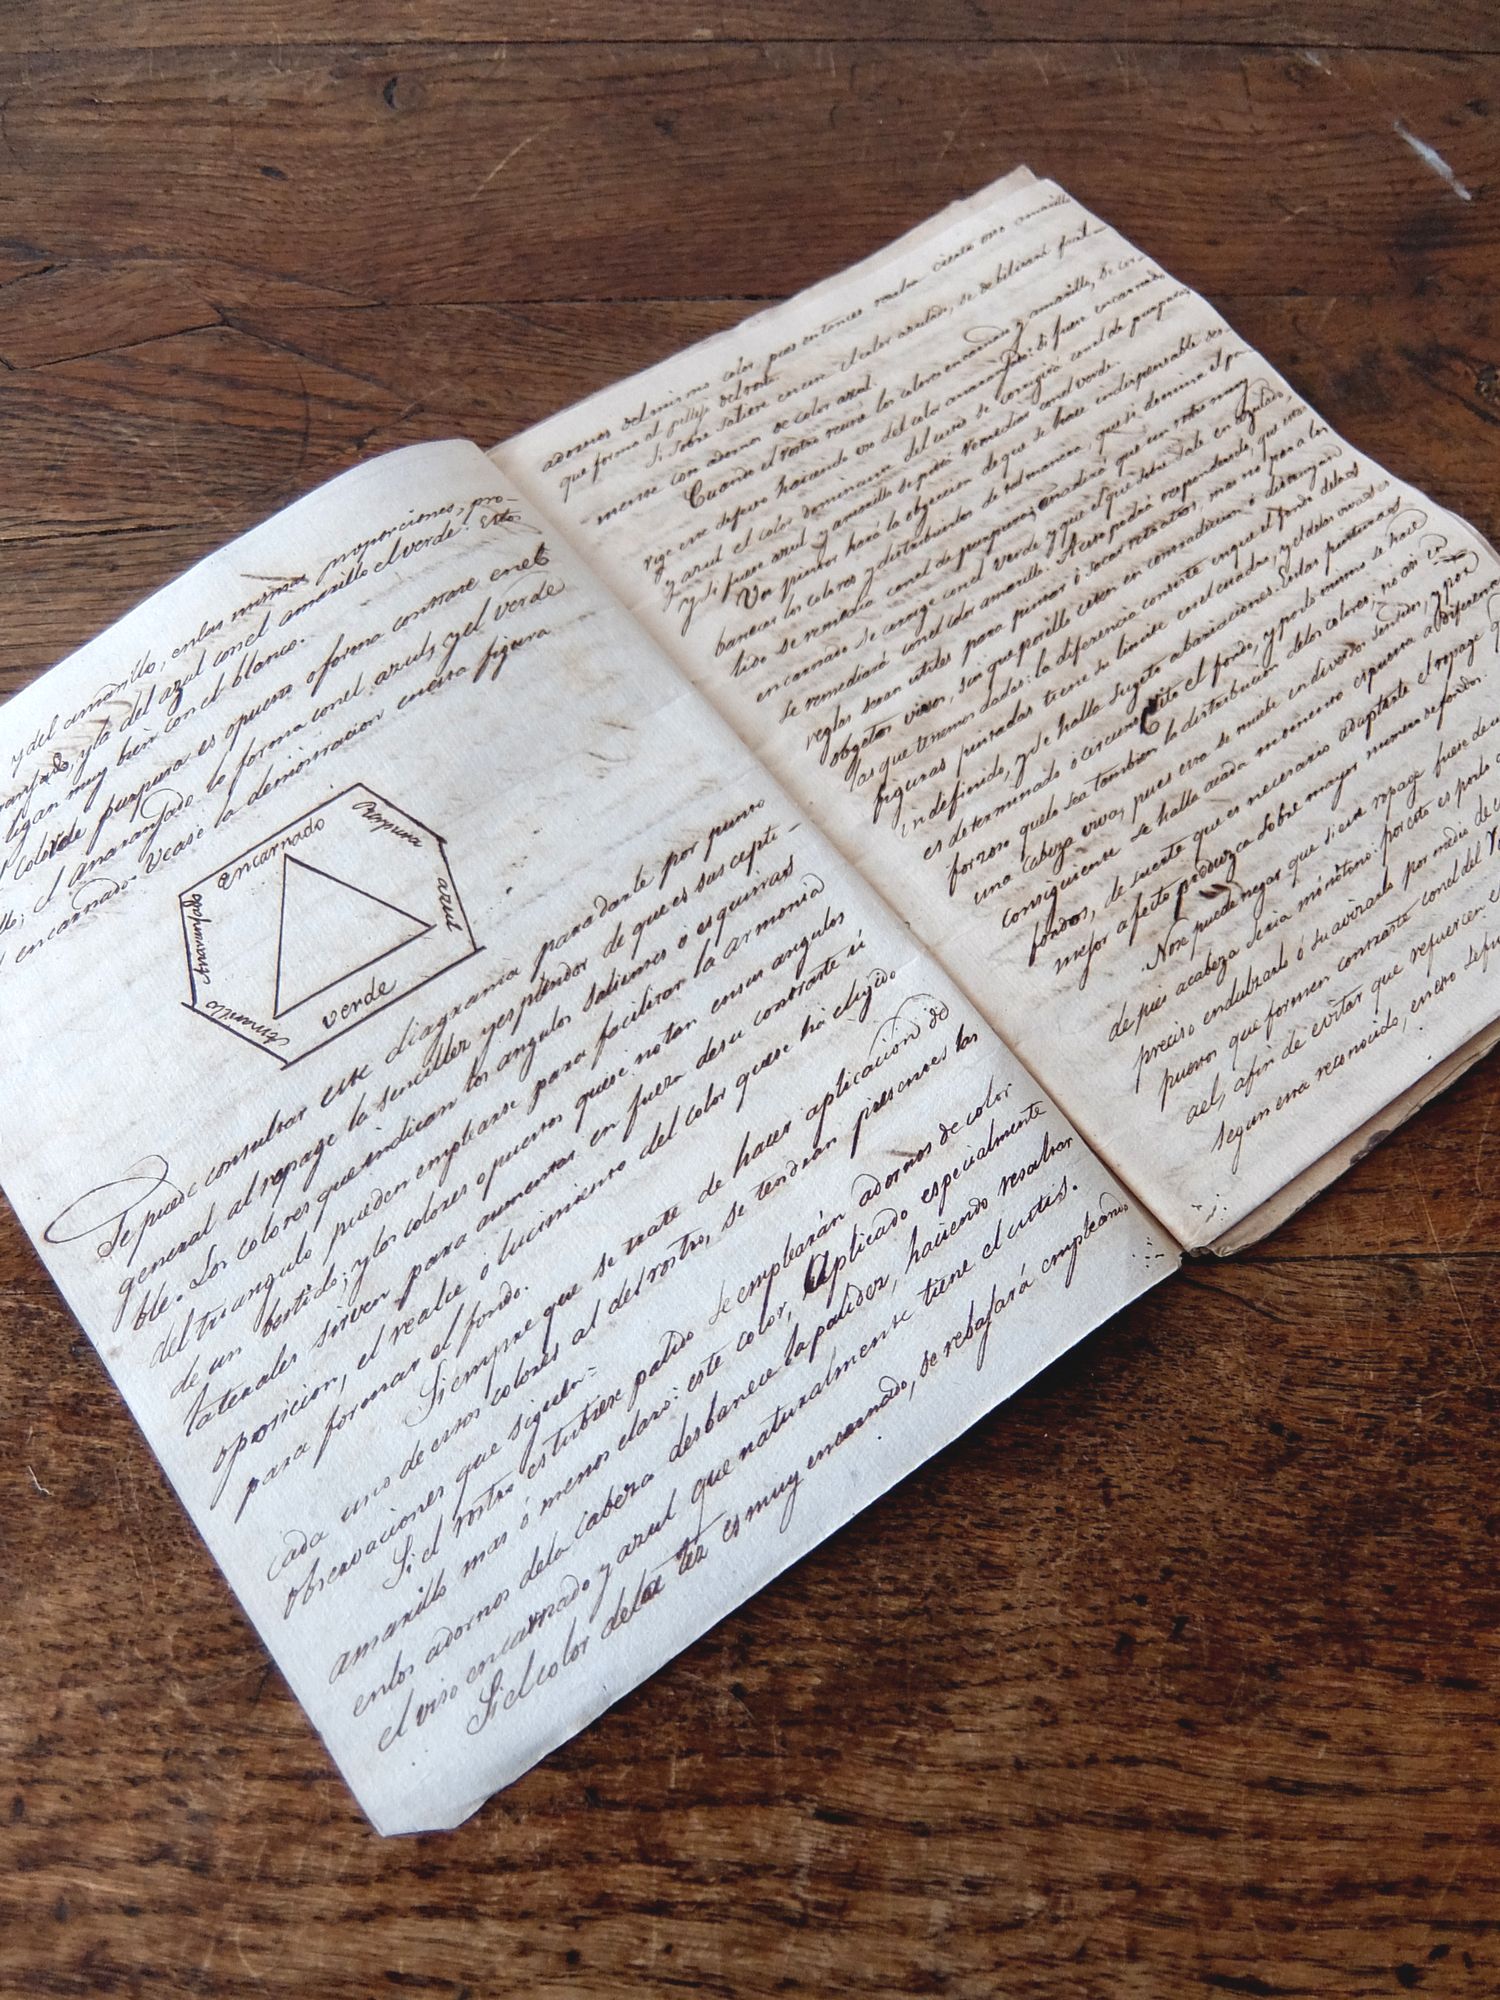 y del amarillo, en las mismas proporciones, pro-
y la del azul con el amarillo el verde: Estos
ligan muy bien con el blanco.
color de purpura es opuesto o forma contraste con el
el amaranjado lo forma con el azul, y el verde
encarnado. Vease la demostracion en esta figura
encarnado
Purpura
azul
verde
Amarillo
Amaranjado
Se puede consultar este diagrama para darle por punto
general al ropage la sencillez y esplendor de que es suscepti-
ble. Los colores que indican los angulos salientes o esquinas
del triangulo pueden emplearse para facilitar la armonia
de un bestido; y los colores opuestos que se notan en sus angulos
laterales sirven para aumentar en fuerza de su contraste ú
oposicion, el realce o lucimiento del color que se há elegido
para formar el fondo.
Siempre que se trate de hacer aplicacion de
cada uno de estos colores al del rostro, se tendrán presentes las
observaciones que siguen=
Si el rostro estubiere palido se emplearán adornos de color
amarillo mas ó menos claro: este color, Aplicado especialmente
en los adornos de la cabeza desbanece la palidez, haciendo resaltar
el viso encarnado y azul que naturalmente tiene el cutis.
Si el color de la tez es muy encarnado, se rebajará empleando
adornos del mismo color, pues entonces resulta cierto viso amarillo
que forma el pellejo del rostro.
Si sobre saliere en él el color azulado, se debilitará facil-
mente con adornos de color azul.
Cuando el rostro reuna los colores encarnado y amarillo, se cor-
rige este defecto haciendo uso del color amaranjado: si fuere encarnado
y azul el color dominante del cutis se corregirá con el de purpura,
y si fuere azul y amarillo se podrá remediar con el verde.
Un pintor hará la objeccion de que se hace indispensable des-
banecer los colores y distribuirlos de tal manera, que si domina el pa-
lido se remedia con el de purpura; añadirá que un rostro muy
encarnado se corrige con el verde y que el que sobresale en azulado,
se remediará con el color amarillo. A esto podrá responderse, que estas
reglas seran utiles para pintar ó sacar retratos, mas no para los
objetos vivos, sin que por ello esten en contradicion ó destruyan
las que tenemos dadas: la diferencia consiste en que el fondo de las
figuras pintadas tiene su limite con el cuadro, y el de las vivas es
indefinido, y se halla sugeto a bariaciones. En las pinturas
es determinado o circunscrito el fondo, y por lo mismo se hace
forzoso que lo sea tambien la distribucion de los colores; no asi en
una cabeza viva, pues esta se muebe en diversos sentidos, y por
consiguiente se halla a cada momento espuesta a diferentes
fondos, de suerte que es necesario adaptarle el ropage que
mejor efecto produzca sobre mayor numero de fondos.
No se puede negar que si este ropage fuese de un
de pies a cabeza seria monótono: por esto es por lo
preciso endulzarlo ó suavizarlo por medio de
puestos que formen contraste con el del
ael, afin de evitar que refuercen
segun está reconocido, en esto